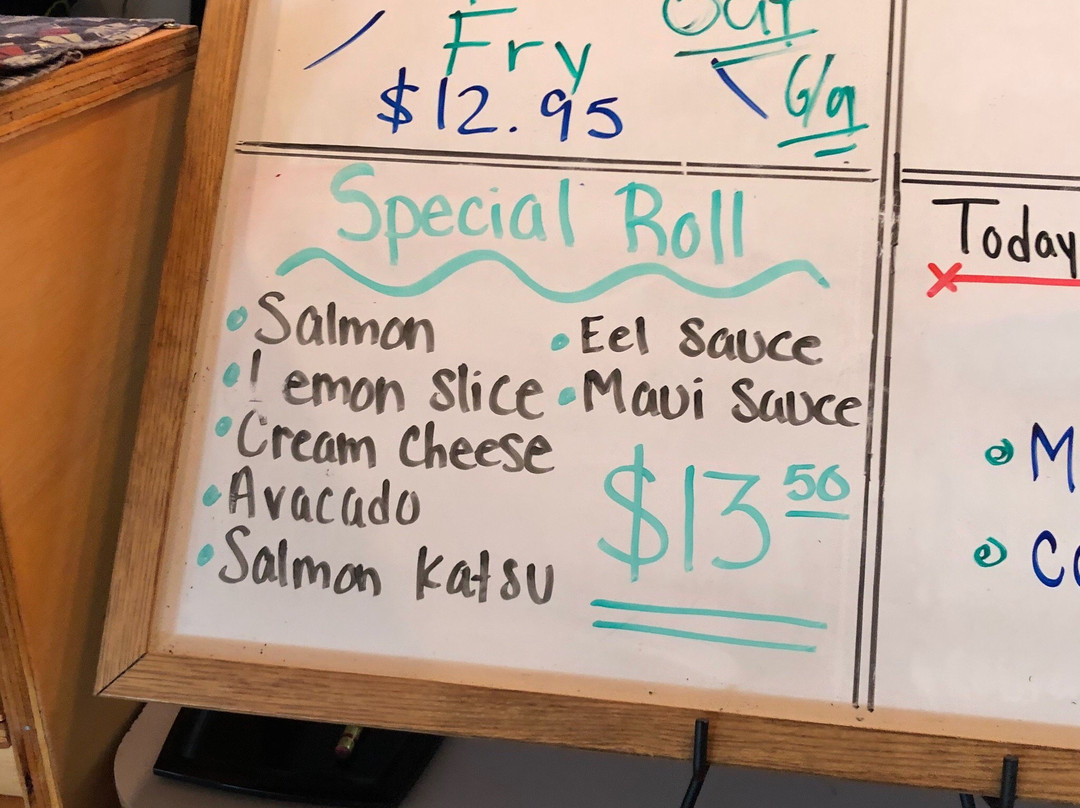 Fry
$12.95
Out
6/9
Special Roll
• Salmon
• lemon Slice
• Cream Cheese
• Avacado
• Salmon Katsu
• Eel Sauce
• Maui Sauce
$13 50
Today
• M
• Co